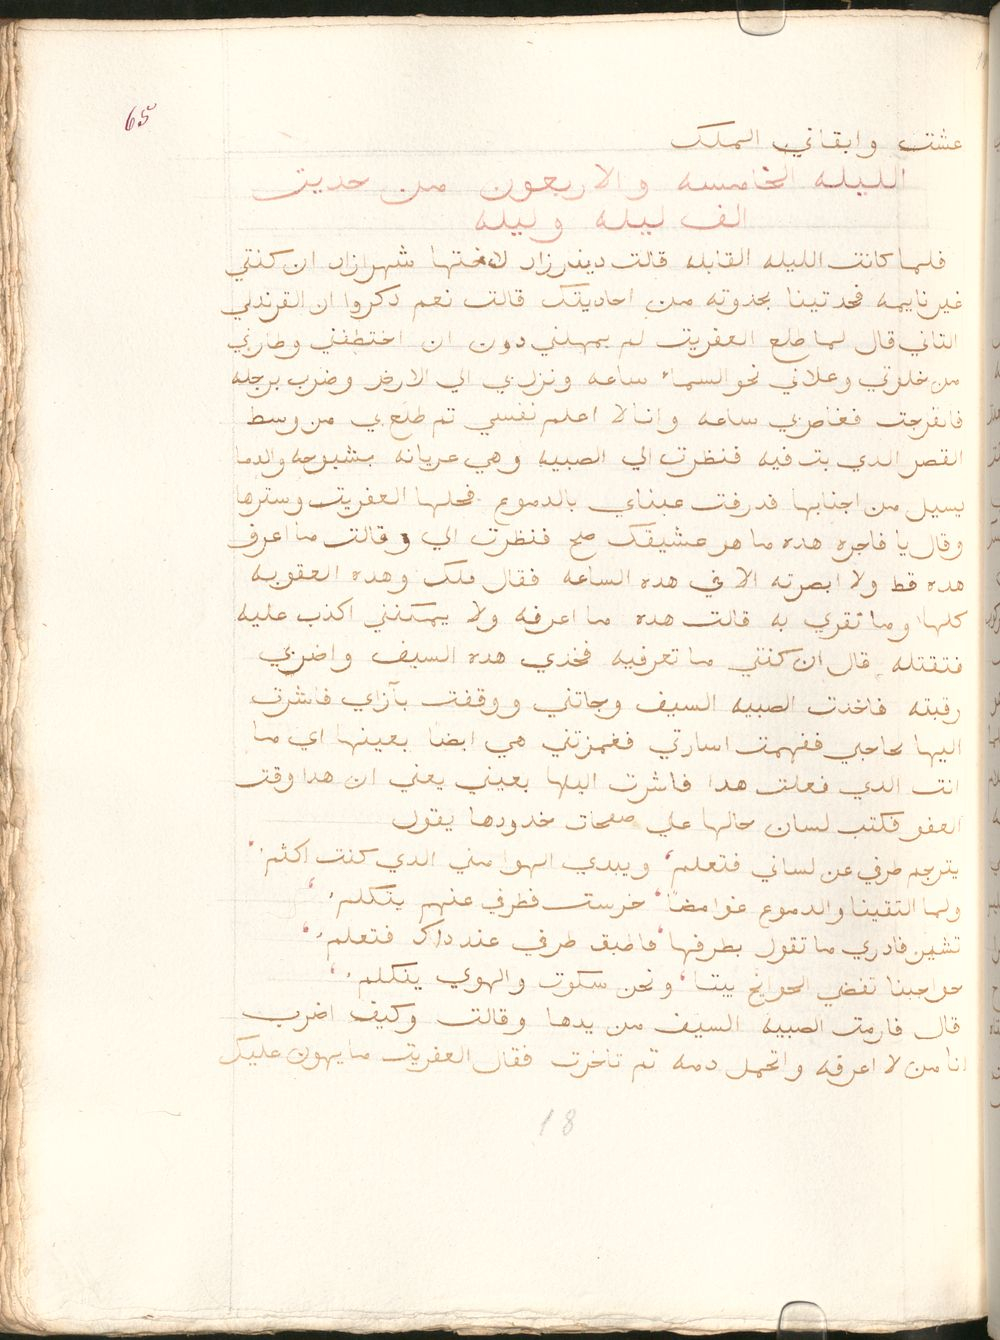 65
عشت وابقاني الملك
الليله الخامسه والاربعون من حديت
الف ليله وليله
فلما كانت الليله القابله قالت دينرزاد لاختها شهرازاد ان كنتي
غير نايمه فحدتينا بحدوته من احاديتك قالت نعم دكروا ان القرندلي
التاني قال لما طلع العفريت لم يمهلني دون ان اختطفني وطار بي
من خلوتي وعلاني نحو السماء ساعه ونزل بي الي الارض وضرب برجله
فانفرجت فغاص بي ساعه وانا لا اعلم نفسي تم طلع بي من وسط
القصر الدي بت فيه فنظرت الي الصبيه وهي عريانه مشبوحه والدما
يسيل من اجنابها فدرفت عيناي بالدموع فحلها العفريت وسترها
وقال يا فاجره هده ما هو عشيقك صح فنظرت الي وقالت ما اعرف
هده قط ولا ابصرته الا في هده الساعه فقال ملك وهده العقوبه
كلها وما تقري به قالت هده ما اعرفه ولا يمكنني اكذب عليه
فتقتله قال ان كنتي ما تعرفيه فخدي هده السيف واضربي
رقبته فاخدت الصبيه السيف وجاتني ووقفت بآزاي فاشرت
اليها بحاجبي ففهمت اسارتي فغمزتني هي ايضا بعينها اي ما
انت الدي فعلت هدا فاشرت اليها بعيني يعني ان هدا وقت
العفو فكتب لسان حالها علي صفحات خدودها يقول
يترجم طرفي عن لساني فتعلم، ويبدي الهوا مني الدي كنت اكتم،
ولما التقينا والدموع غوامضا، خرست فطرفي عنهم يتكلم،
تشير فادري ما تقول بطرفها، فاطبق طرفي عند داك فتعلم،
حواجبنا تقضي الحوايج بيتا، ونحن سكوت والهوي يتكلم،
قال فارمت الصبيه السيف من يدها وقالت وكيف اضرب
انا من لا اعرفه واتحمل دمه تم تاخرت فقال العفريت ما يهون عليك
18